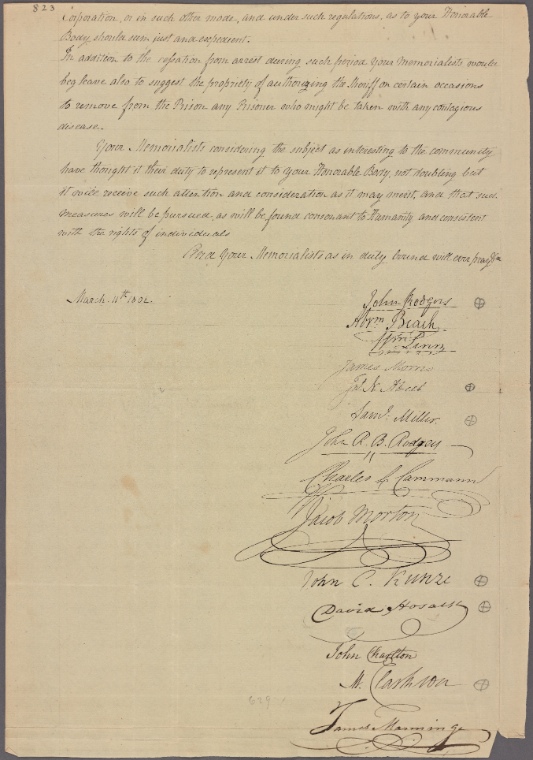 823
Corporation, or in such other mode, and under such regulations, as to your Honorable
Body, should seem just and expedient.
In addition to the cessation from arrest during such period Your Memorialists would
beg leave also to suggest the propriety of authorizing the Sheriff on certain occasions
to remove from the Prison any Prisoner who might be taken with any contagious
disease.
Your Memorialists considering the subject as interesting to the community
have thought it their duty to represent it to Your Honorable Body, not doubting but
it will receive such attention and consideration as it may merit, and that such
measures will be pursued, as will be found consonant to Humanity and consistent
with the rights of individuals
And Your Memorialists as in duty bound will ever pray &c
March 11th 1802.
John Rodgers
Abrm. Beach
Wm. Linn
James Morris
Jn. N. Abeel
Saml. Miller
John R. B. Rodgers
Charles L Cammann
Jacob Morton
John C. Kunze
David Hosack
John Charlton
M. Clarkson
James Manning